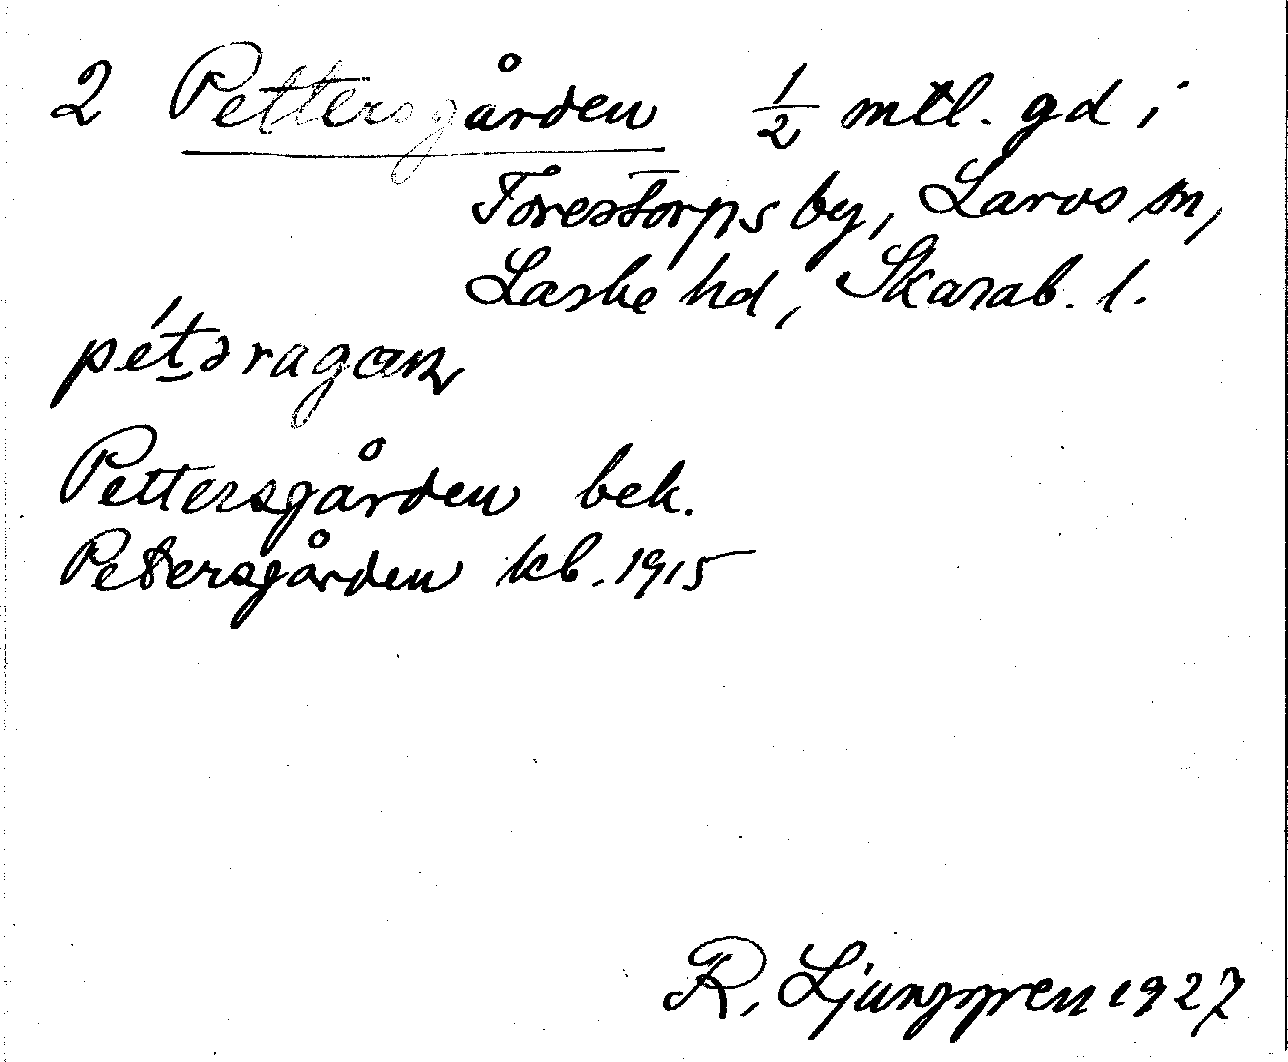 2 Pettersgården 1/2 mtl. gd i
Torestorps by, Larvs sn,
Laske hd, Skarab. l.
pét̲əragan
Pettersgården bek.
Petersgården kb. 1915
R. Ljunggren 1927